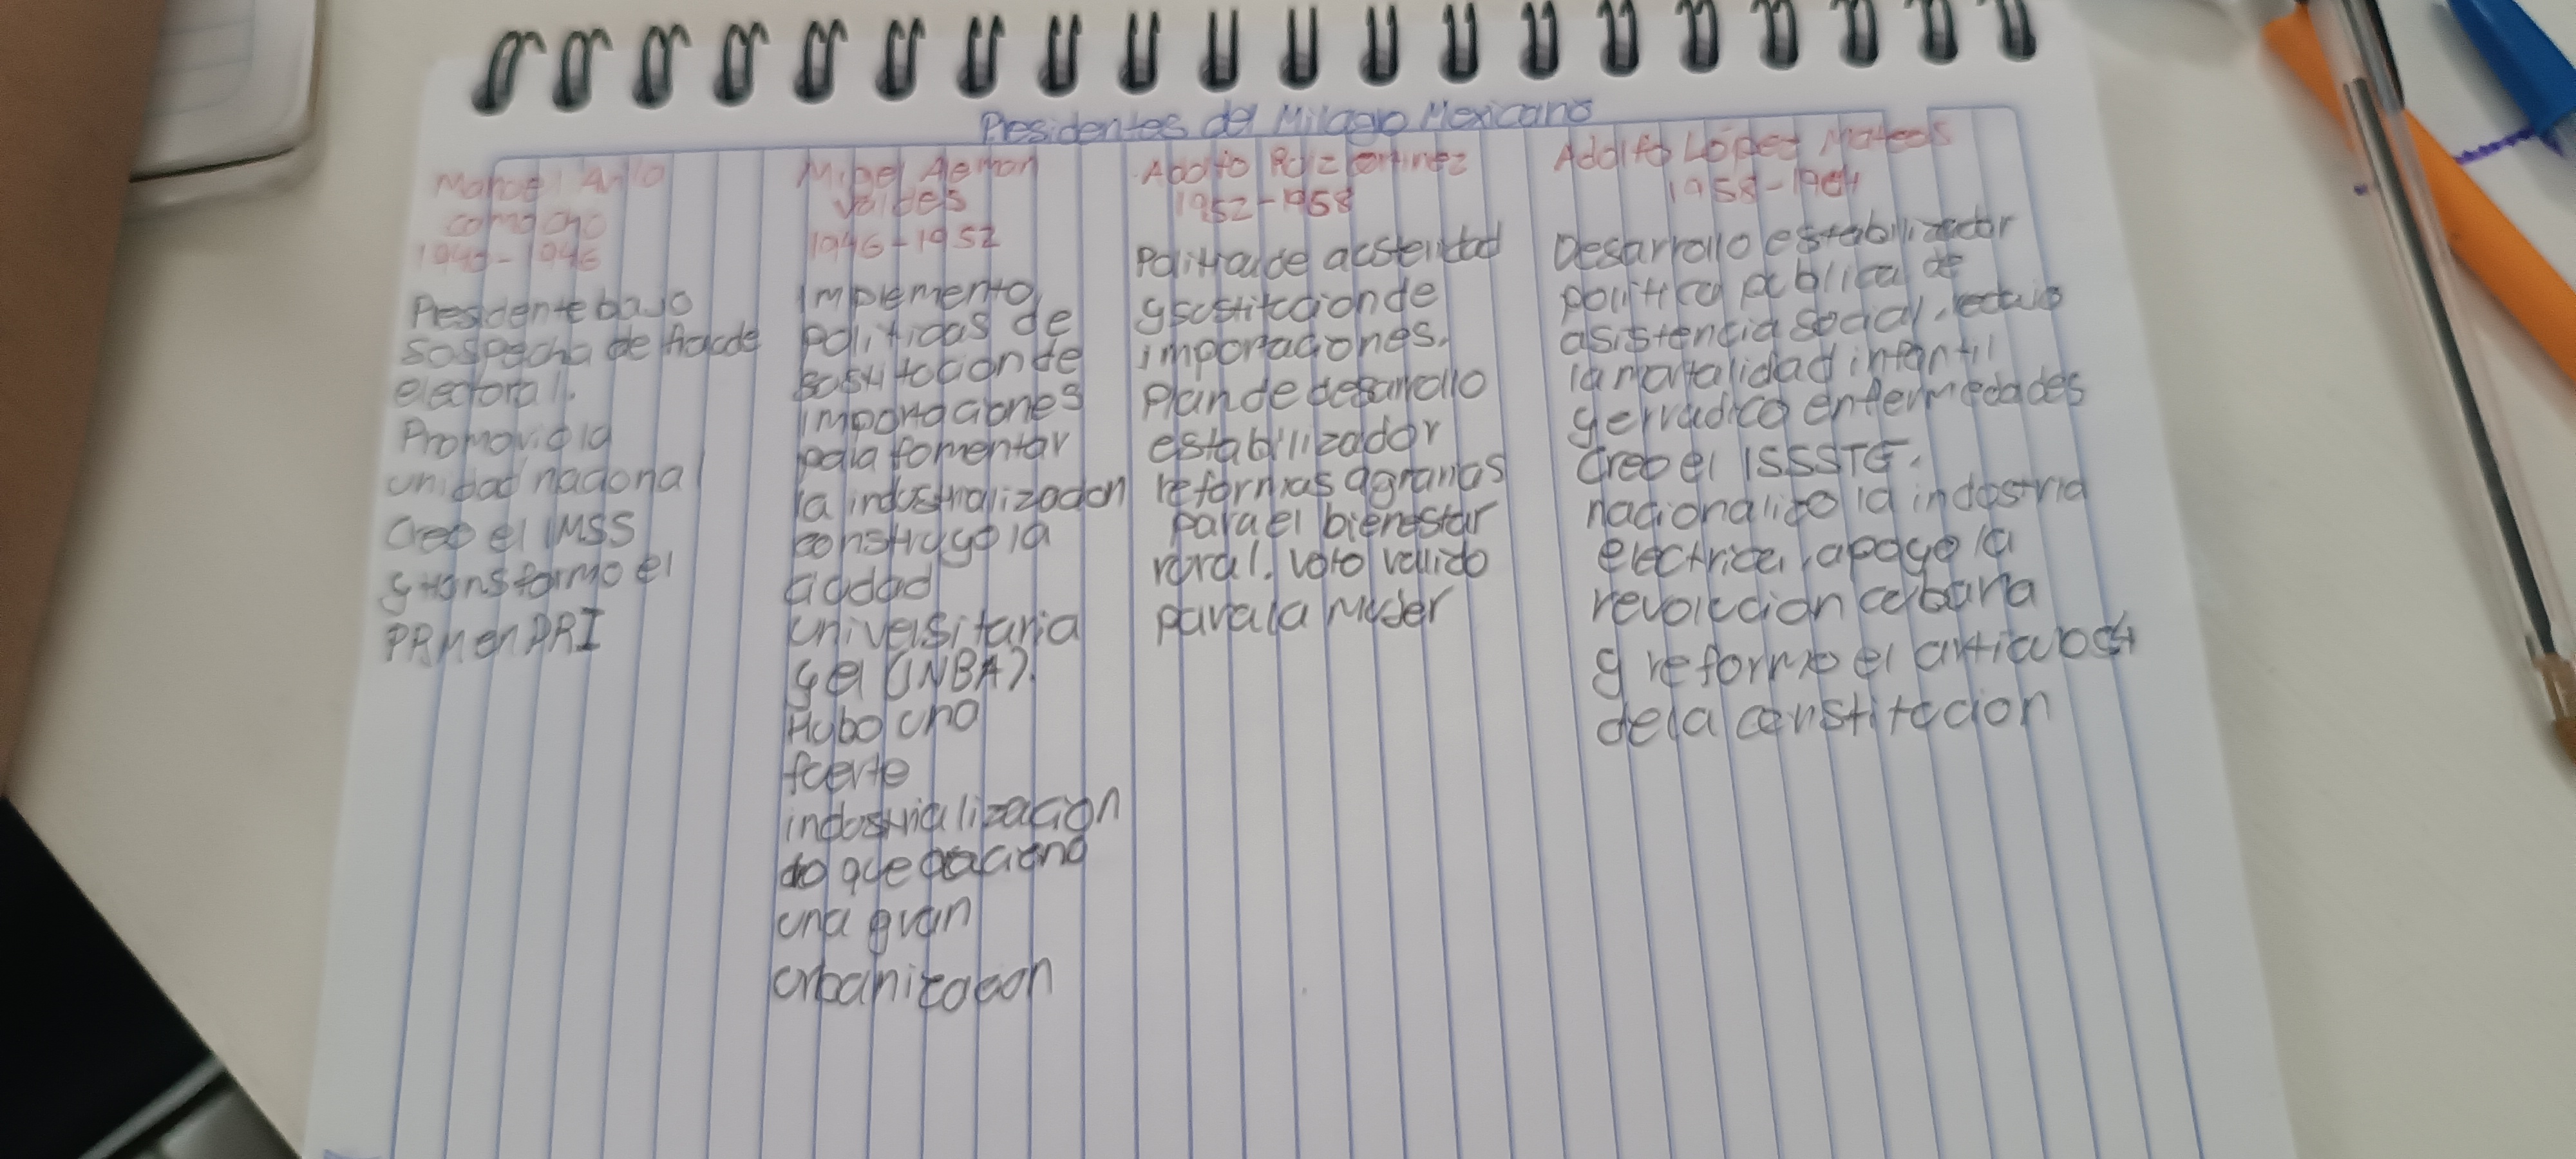 Presidentes del Milagro Mexicano
Manuel Avila
camacho
1940-1946
Presidente bajo
sospecha de fraude
electoral.
Promovio la
unidad nacional
Creo el IMSS
y transformo el
PRM en PRI
Migel Aleman
Valdes
1946-1952
Implemento
politicas de
sustitucion de
importaciones
para fomentar
la industrializacion
construyo la
ciudad
universitaria
y el (INBA).
Hubo una
fuerte
industrializacion
lo que ocaciono
una gran
urbanizacion
Adolfo Ruiz cortinez
1952-1958
Politica de austeridad
y sustitucion de
imporaciones.
Plan de desarrollo
estabilizador
reformas agrarias
para el bienestar
rural. voto valido
para la Mujer
Adolfo López Mateos
1958-1964
Desarrollo estabilizador
politica publica de
asistencia social, redujo
la mortalidad infantil
y erradico enfermedades
Creo el ISSSTE.
nacionalizo la industria
electrica, apoyo la
revolucion cubana
y reformo el articulo 4
de la constitucion